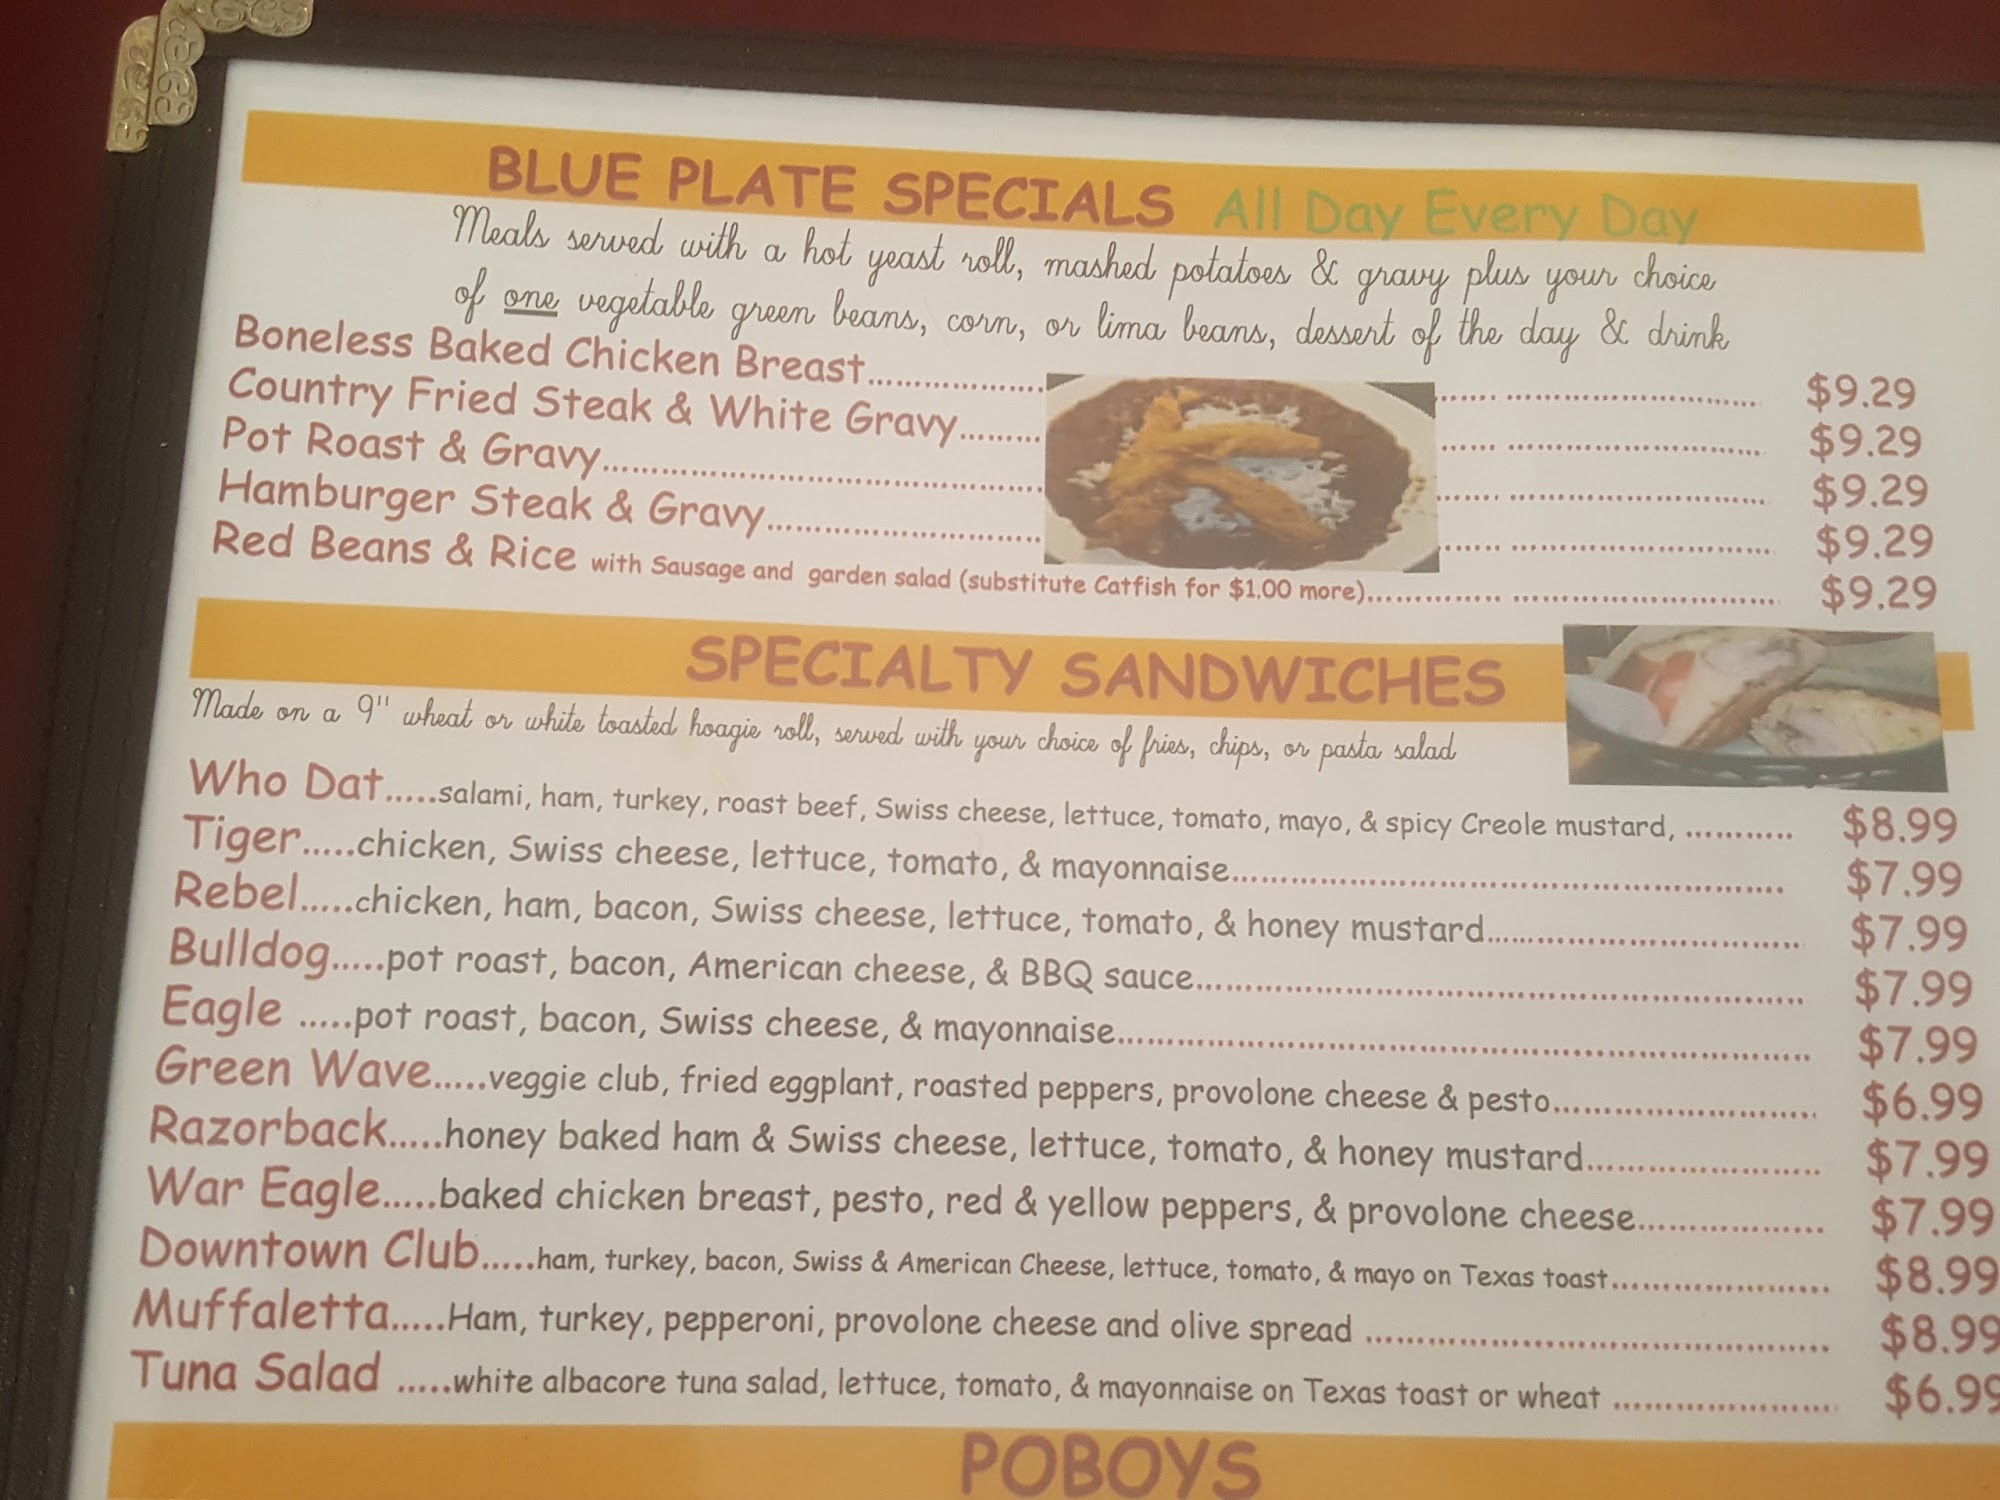 BLUE PLATE SPECIALS All Day Every Day
Meals served with a hot yeast roll, mashed potatoes & gravy plus your choice
of one vegetable green beans, corn, or lima beans, dessert of the day & drink
Boneless Baked Chicken Breast.................... ...... ............................. $9.29
Country Fried Steak & White Gravy......... ...... ............................. $9.29
Pot Roast & Gravy................................................. ...... ............................. $9.29
Hamburger Steak & Gravy............................... ...... ............................. $9.29
Red Beans & Rice with Sausage and garden salad (substitute Catfish for $1.00 more)............... ............................. $9.29
SPECIALTY SANDWICHES
Made on a 9" wheat or white toasted hoagie roll, served with your choice of fries, chips, or pasta salad
Who Dat.....salami, ham, turkey, roast beef, Swiss cheese, lettuce, tomato, mayo, & spicy Creole mustard, ........... $8.99
Tiger.....chicken, Swiss cheese, lettuce, tomato, & mayonnaise............................................................. $7.99
Rebel.....chicken, ham, bacon, Swiss cheese, lettuce, tomato, & honey mustard.................................. $7.99
Bulldog.....pot roast, bacon, American cheese, & BBQ sauce.................................................................. $7.99
Eagle .....pot roast, bacon, Swiss cheese, & mayonnaise........................................................................... $7.99
Green Wave.....veggie club, fried eggplant, roasted peppers, provolone cheese & pesto............................ $6.99
Razorback.....honey baked ham & Swiss cheese, lettuce, tomato, & honey mustard......................... $7.99
War Eagle.....baked chicken breast, pesto, red & yellow peppers, & provolone cheese.................... $7.99
Downtown Club.....ham, turkey, bacon, Swiss & American Cheese, lettuce, tomato, & mayo on Texas toast....................... $8.99
Muffaletta.....Ham, turkey, pepperoni, provolone cheese and olive spread ................................................. $8.99
Tuna Salad .....white albacore tuna salad, lettuce, tomato, & mayonnaise on Texas toast or wheat ....................... $6.99
POBOYS